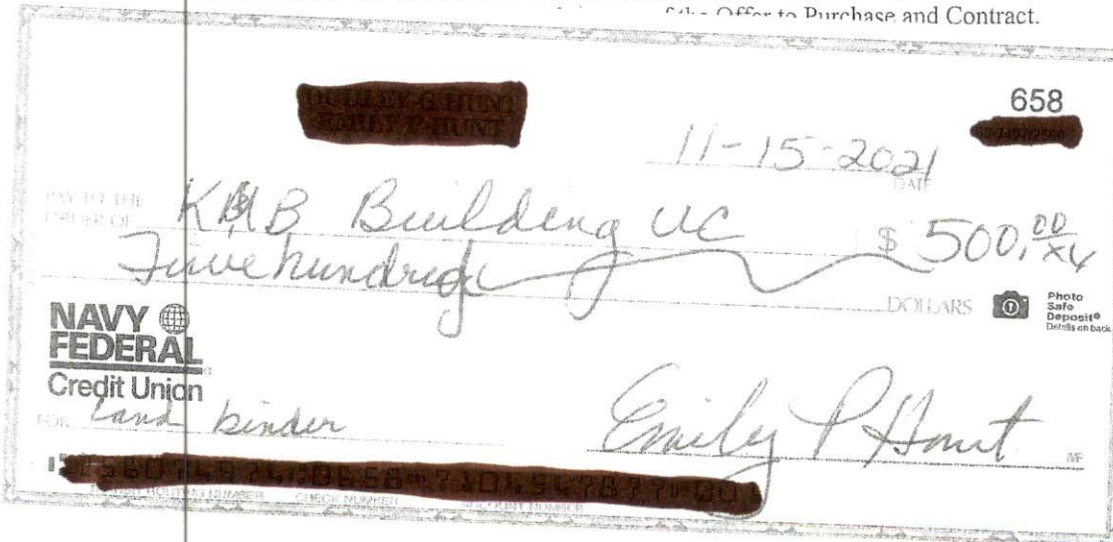 the Offer to Purchase and Contract.
658
11-15-2021
DATE
PAY TO THE
ORDER OF
KMB Building LLC
$ 500.00/xx
Five hundred
DOLLARS
Photo
Safe
Deposit®
Details on back
NAVY
FEDERAL
Credit Union
FOR Land binder
Emily P Hunt
MP
CHECK NUMBER